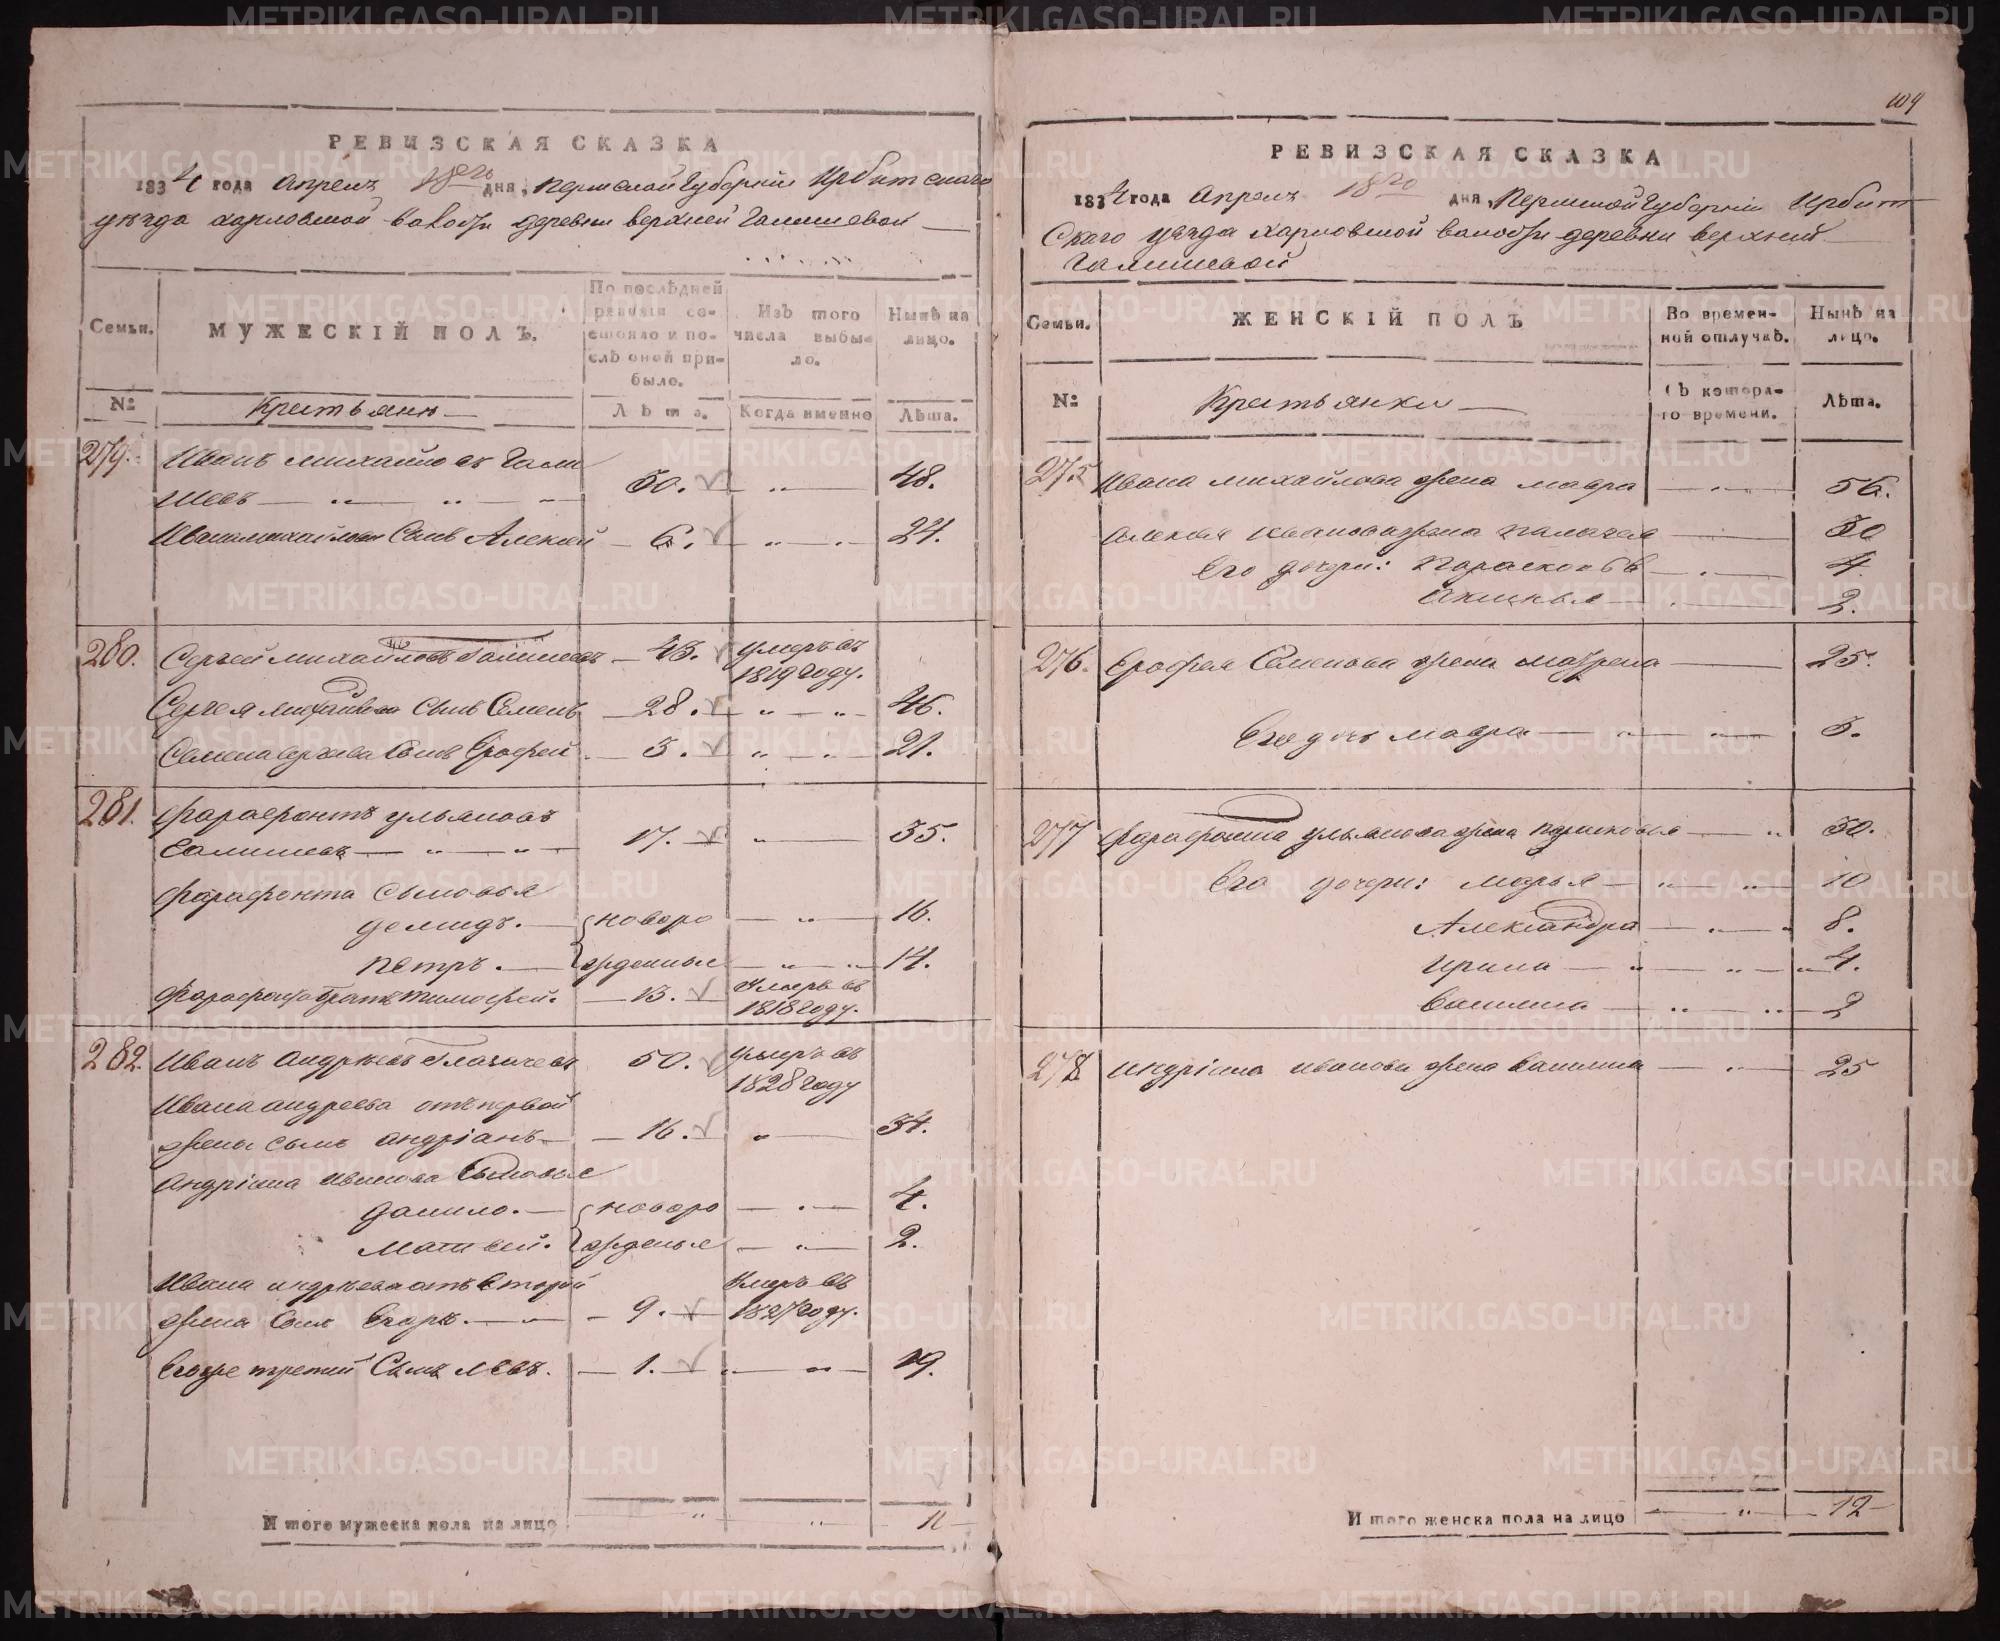 РЕВИЗСКАЯ СКАЗКА
1834 года Апреля 18го дня, Пермской Губернии Ирбитскаго
уезда харловской волости деревни верхней Галишевой
Семьи.
МУЖЕСКІЙ ПОЛЪ.
По послѣдней ревизіи состояло и послѣ оной прибыло.
Изъ того числа выбыло.
Нынѣ на лицо.
№
Крестьяне
Лѣта.
Когда именно
Лѣта.
279. Иванъ михайловъ Гали
шевъ 30. 48.
Ивана михайлова Сынъ Алексей 6. 24.
280. Сергей михайловъ Галишевъ 45. умеръ въ
1819 году.
Сергея михайлова Сынъ Семенъ 28. 46.
Семена Сергеева Сынъ Ерофей 3. 21.
281. Фарафонтъ ульяновъ
Галишевъ 17. 35.
Фарафонта Сыновья
демидъ. новоро 16.
петръ. жденные 14.
Фарафонта братъ тимофей. 13. умеръ въ
1818 году.
282. Иванъ андреевъ Глазачевъ 50. умеръ въ
1828 году
Ивана андреева отъ первой
жены сынъ андріанъ 16. 34.
Андріана иванова Сыновья
данило. новоро 4.
матвей. жденые 2.
Ивана андреева отъ второй
жены Сынъ Егоръ. 9. умеръ въ
1827 году.
Егоже третий Сынъ левъ. 1. 19.
Итого мужеска пола на лицо 11
109
РЕВИЗСКАЯ СКАЗКА
1834 года Апреля 18го дня, Пермской Губерніи Ирбит
Скаго уезда харловской волости деревни верхней
Галишевой
Семьи.
ЖЕНСКІЙ ПОЛЪ
Во временной отлучкѣ.
Нынѣ на лицо.
№
Крестьянки
Съ котораго времени.
Лѣта.
275 Ивана михайлова жена мавра 56.
алексея иванова жена палагея 30
Его дочери: Парасковья 4
Акинья 2.
276. Ерофея Семенова жена матрена 25.
Егоже дочь мавра 5.
277 Фарафонта ульянова жена парасковья 30.
Его дочери: марья 10
Александра 8.
ирина 4.
Василиса 2
278 андріана иванова жена василиса 25
Итого женска пола на лицо 12
METRIKI.GASO-URAL.RU